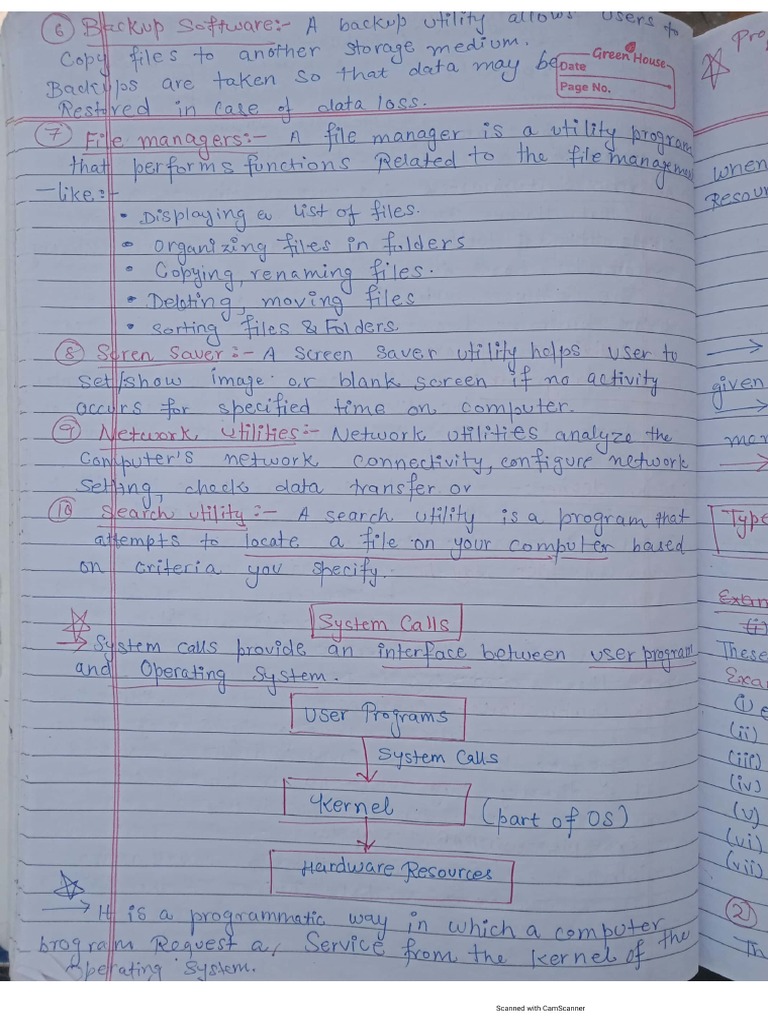 ⑥ Backup Software:- A backup utility allows users to
Copy files to another storage medium.
Backups are taken so that data may be
Restored in case of data loss.
Green House
Date
Page No.
⑦ File managers:- A file manager is a utility program
that performs functions Related to the file management
—like:-
• Displaying a list of files.
• Organizing files in folders
• Copying, renaming files.
• Deleting, moving files
• Sorting files & Folders
⑧ Scren Saver:- A Screen Saver utility helps user to
Set/show image or blank screen if no activity
occurs for specified time on computer.
⑨ Network utilities:- Network utilities analyze the
Computer's network connectivity, configure network
setting, check data transfer or
⑩ Search utility:- A search utility is a program that
attempts to locate a file on your computer based
on criteria you specify.
System Calls
→ System calls provide an interface between user program
and Operating System.
User Programs
System Calls
Kernel
(part of OS)
Hardware Resources
→ It is a programmatic way in which a computer
program Request a, Service from the Kernel of the
Operating System.
Pro
when
Resour
given
mar
Type
Exam
(i)
These
Exa
(i) e
(ii)
(iii)
(iv)
(v)
(vi)
(vii)
②
Th
Scanned with CamScanner